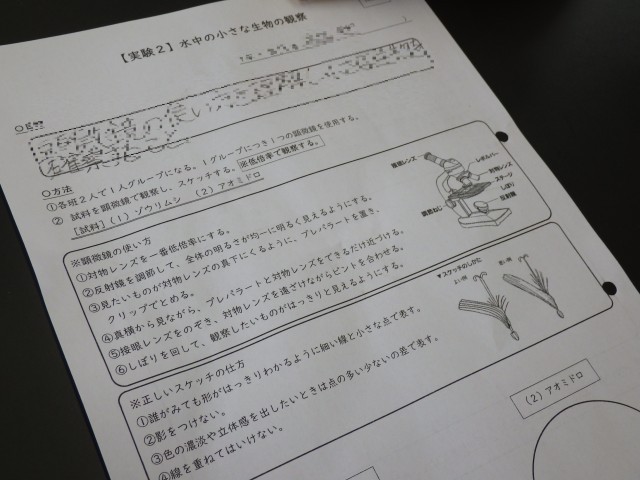 【実験２】水中の小さな生物の観察
○目的
○方法
①各班２人で１人グループになる。１グループにつき１つの顕微鏡を使用する。
② 試料を顕微鏡で観察し、スケッチする。※低倍率で観察する。
[試料]（１）ゾウリムシ （２）アオミドロ
接眼レンズ
レボルバー
対物レンズ
ステージ
しぼり
反射鏡
調節ねじ
※顕微鏡の使い方
①対物レンズを一番低倍率にする。
②反射鏡を調節して、全体の明るさが均一に明るく見えるようにする。
③見たいものが対物レンズの真下にくるように、プレパラートを置き、
クリップでとめる。
④真横から見ながら、プレパラートと対物レンズをできるだけ近づける。
⑤接眼レンズをのぞき、対物レンズを遠ざけながらピントを合わせる。
⑥しぼりを回して、観察したいものがはっきりと見えるようにする。
▼スケッチのしかた
よい例
悪い例
※正しいスケッチの仕方
①誰がみても形がはっきりわかるように細い線と小さな点で表す。
②影をつけない。
③色の濃淡や立体感を出したいときは点の多い少ないの差で表す。
④線を重ねてはいけない。
（２）アオミドロ